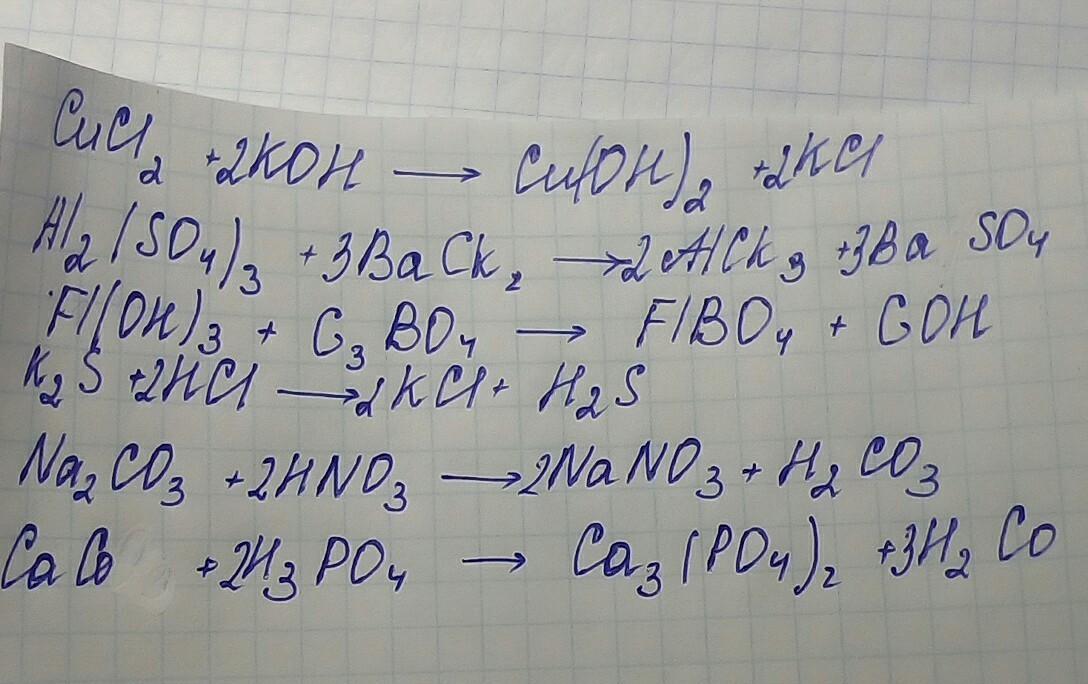 CuCl₂ +2KOH → Cu(OH)₂ +2KCl
Al₂(SO₄)₃ +3BaCk₂ →2AlCk₃ +3Ba SO₄
Fl(OH)₃ + C₃BO₄ → FlBO₄ + COH
K₂S +2HCl →2KCl + H₂S
Na₂CO₃ +2HNO₃ →2NaNO₃ + H₂CO₃
CaCo +2H₃PO₄ → Ca₃(PO₄)₂ +3H₂Co